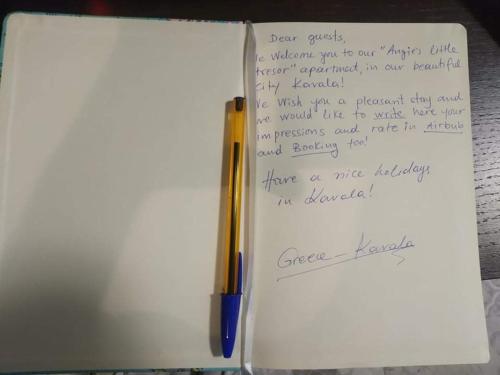 Dear guests,
We Welcome you to our "Angie's little
tresor" apartmed, in our beautiful
City Kavala!
We Wish you a pleasant stay and
we would like to write here your
impressions and rate in Airbnb
and Booking too!
Have a nice holidays
in Kavala!
Greece - Kavala